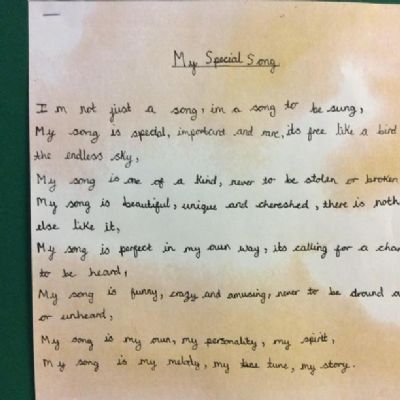 My Special Song
I m not just a song, im a song to be sung,
My song is special, important and rare, its free like a bird
the endless sky,
My song is one of a kind, never to be stolen or broken
My song is beautiful, unique and chereshed, there is noth
else like it,
My song is perfect in my own way, its calling for a chan
to be heard,
My song is funny, crazy and amusing, never to be dround o
or unheard,
My song is my own, my personality, my spirit,
My song is my melody, my tune, my story.